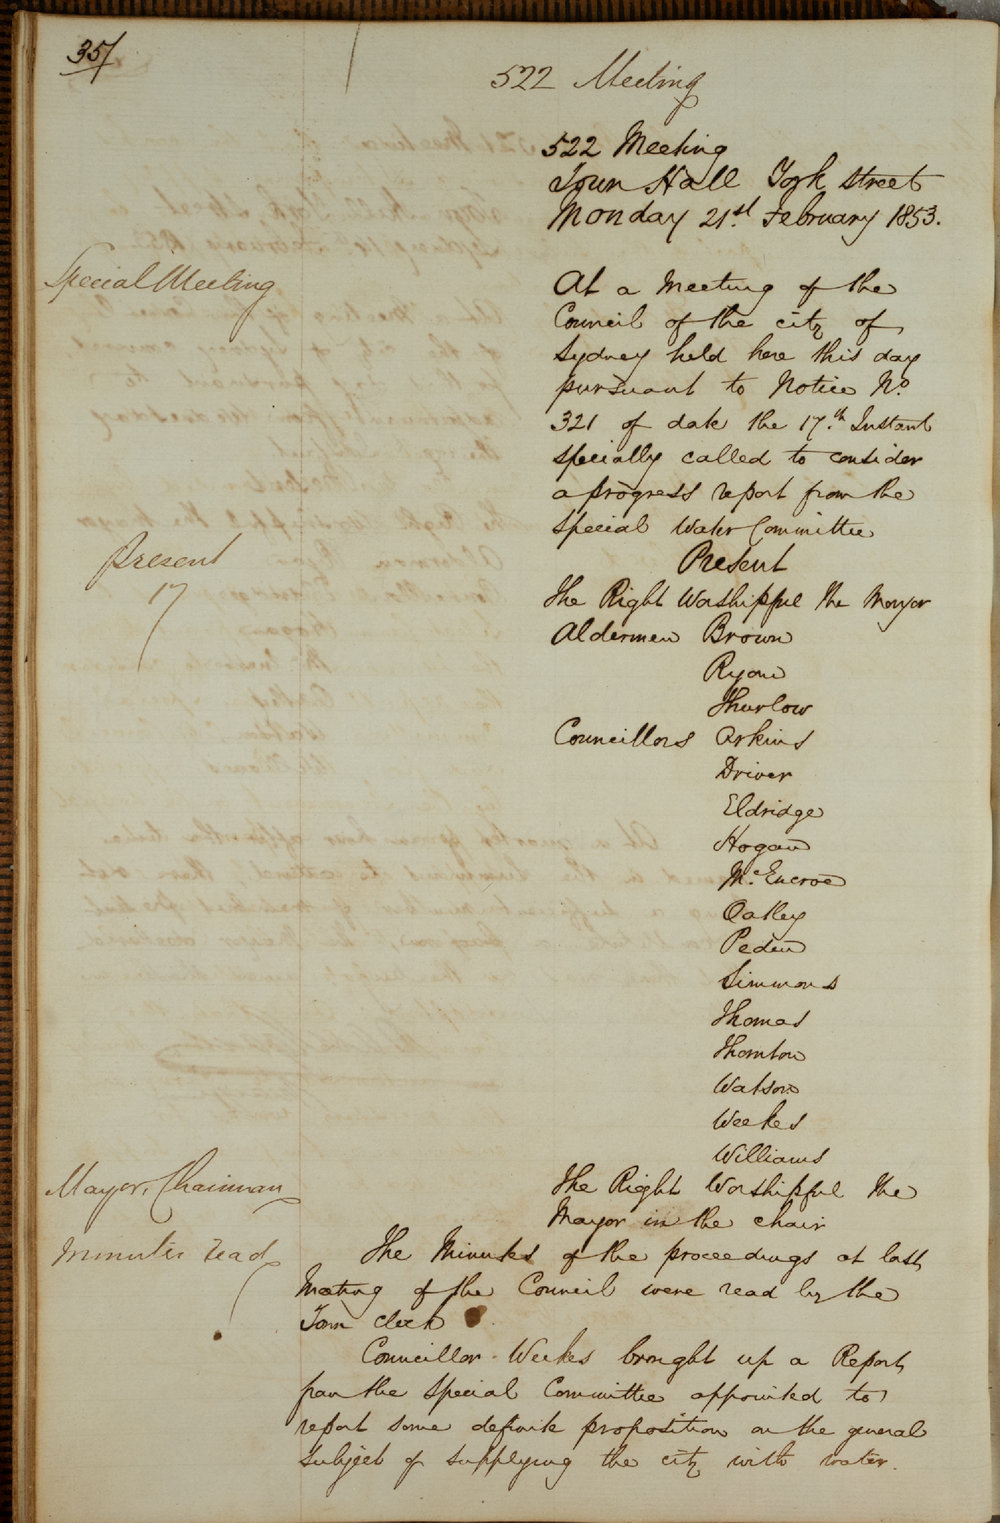 357
522 Meeting
522 Meeting
Town Hall York street
Monday 21st February 1853.
Special Meeting
At a Meeting of the
Council of the city of
Sydney held here this day
pursuant to Notice No
321 of date the 17th Instant
specially called to consider
a progress report from the
Special Water Committee
Present
17
Present
The Right Worshipful the Mayor
Aldermen Brown
Ryan
Thurlow
Councillors Arkins
Driver
Eldridge
Hogan
McEncroe
Oatley
Peden
Simmons
Thomas
Thornton
Watson
Weekes
Williams
Mayor, Chairman
The Right Worshipful the
Mayor in the chair
Minutes read
The Minutes of the proceedings at last
Meeting of the Council were read by the
Town Clerk
Councillor Weekes brought up a Report
from the Special Committee appointed to
report some definite proposition on the general
subject of supplying the city with water.